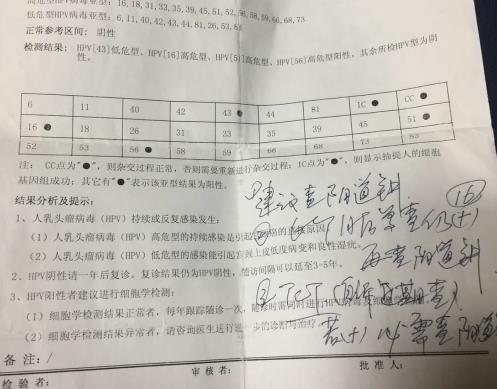 高危型HPV病毒亚型: 16,18,31,33,35,39,45,51,52,56,58,59,66,68,73
低危型HPV病毒亚型: 6,11,40,42,43,44,81,26,53,
正常参考区间: 阴性
检测结果: HPV[43]低危型、HPV[16]高危型、HPV[51]高危型、HPV[56]高危型阳性，其余所检HPV型为阴性。
6 11 40 42 43● 44 81 IC● CC●
16● 18 26 31 33 35 39 45 51●
52 53 56● 58 59 66 68 73
注: CC点为"●"，则杂交过程正常，否则需要重新进行杂交过程; IC点为"●"，则显示抽提人的细胞
基因组成功; 其它有"●"表示该亚型结果为阳性。
结果分析及提示:
1、人乳头瘤病毒（HPV）持续或反复感染发生:
（1）人乳头瘤病毒（HPV）高危型的持续感染是引起 原因
（2）人乳头瘤病毒（HPV）低危型的感染能引起 上皮低度病变和良性疣。
2、HPV阴性请一年后复诊。复诊结果仍为HPV阴性，随访间隔可以延至3-5年。
3、HPV阳性者建议进行细胞学检测:
（1）细胞学检测结果正常者，每年跟踪随诊一次，随诊时需同时进行HPV
（2）细胞学检测结果异常者，请咨询医生运行进一步的诊断与治疗
建议查阴道镜
16
再查阴道镜
TCT
若(+) 必需查阴道
备 注: /
检 验 者:
审 核 者:
批 准 人: